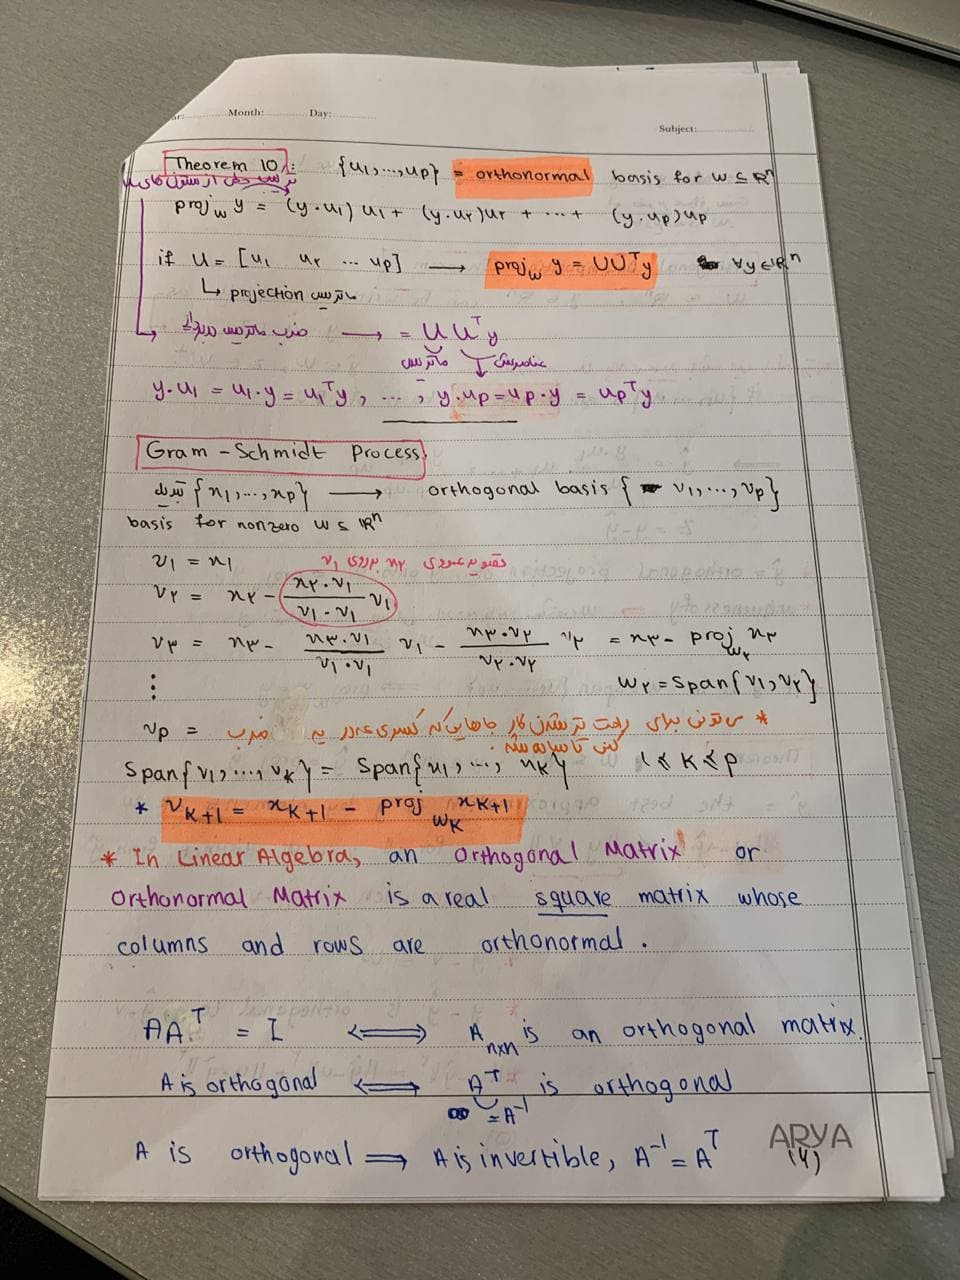 Month: Day:
Subject:
Theorem 10: {u₁,...,uₚ} = orthonormal basis for W ⊆ ℝⁿ
ترکیب خطی از ستون های u
proj_w y = (y·u₁)u₁ + (y·u۲)u۲ + ... + (y·uₚ)uₚ
if U = [u₁ u۲ ... uₚ] ⟶ proj_w y = UUᵀy ∀y∈ℝⁿ
↳ projection ماتریس
ضرب ماتریس در بردار ⟶ = U Uᵀy
ماتریس عناصرش
y·u₁ = u₁·y = u₁ᵀy, ..., y·uₚ = uₚ·y = uₚᵀy
Gram-Schmidt Process
تبدیل {x₁,...,xₚ} ⟶ orthogonal basis {v₁,...,vₚ}
basis for nonzero W ⊆ ℝⁿ
v₁ = x₁ تصویر عمودی x۲ برروی v₁
v۲ = x۲ - (x۲·v₁)/(v₁·v₁) v₁
v۳ = x۳ - (x۳·v₁)/(v₁·v₁) v₁ - (x۳·v۲)/(v۲·v۲) v۲ = x۳ - proj_w۲ x۳
⋮ w۲ = Span{v₁,v۲}
vₚ = * می تونی برای راحت تر شدن کار جاهایی که کسری عدد به ضرب
کنی تا ساده شه.
Span{v₁,...,vₖ} = Span{x₁,...,xₖ} ۱ ≤ K ≤ p
* vₖ₊₁ = xₖ₊₁ - proj_wₖ xₖ₊₁
* In Linear Algebra, an Orthogonal Matrix or
Orthonormal Matrix is a real square matrix whose
columns and rows are orthonormal.
AAᵀ = I ⟺ A n×n is an orthogonal matrix.
A is orthogonal ⟺ Aᵀ is orthogonal
= A⁻¹
A is orthogonal ⟹ A is invertible, A⁻¹ = Aᵀ
ARYA
(4)